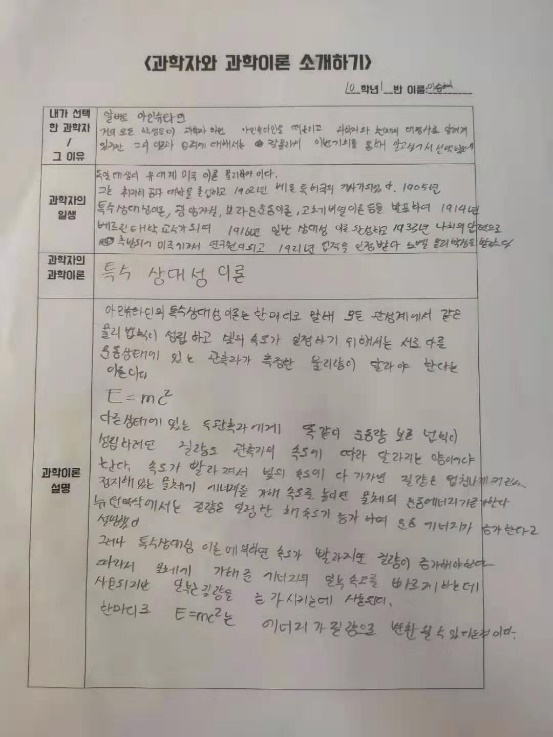 <과학자와 과학이론 소개하기>
10학년 1반 이름
내가 선택
한 과학자
/
그 이유
알베르트 아인슈타인
거의 모든 학생들이 과학자 하면 아인슈타인을 떠올리고
과학자의
일생
독일 태생의 유대계 미국 이론 물리학자이다.
그는 취리히 공과 대학을 졸업하고 1902년 베른 특허국의 1905년
특수상대성이론, 광양자설, 브라운운동이론, 등을 발표하여 1914년
베를린대학 교수가 되며 1916년 일반 상대성 이론 완성하고 1933년 나치의
추방되어 미국가서 연구원이되고 1921년 업적을 인정받다 노벨 물리학상을
과학자의
과학이론
특수 상대성 이론
과학이론
설명
아인슈타인의 특수상대성 이론는 한마디로 말해 모든 관성계에서 같은
물리 법칙이 성립하고 빛의 속도가 일정하기 위해서는 서로 다른
운동상태에 있는 관측자가 측정한 물리량이 달라야 한다는
이론이다
E = mc²
다른상태에 있는 두관측자에게 똑같이 운동량 보존 법칙이
성립하려면 질량도 관측자의 속도에 따라 달라지는 양이어야
한다. 속도가 빨라져서 빛의 속도에 다가가면 질량은 엄청나게
정지해있는 물체에 에너지를 가해 속도를 높이면 물체의 운동에너지가
뉴턴역학에서는 질량은 일정한 채 속도가 증가하여 운동 에너지가 증가한다고
설명했다
그러나 특수상대성 이론에 의하면 속도가 빨라지면 질량이 증가해야한다
따라서 물체에 가해준 에너지의 일부는 속도를 빠르게 하는데
사용되지만 일부는 질량을 증가시키는데 사용된다.
한마디로 E=mc²는 에너지가 질량으로 변환 될수 있다는것이다.